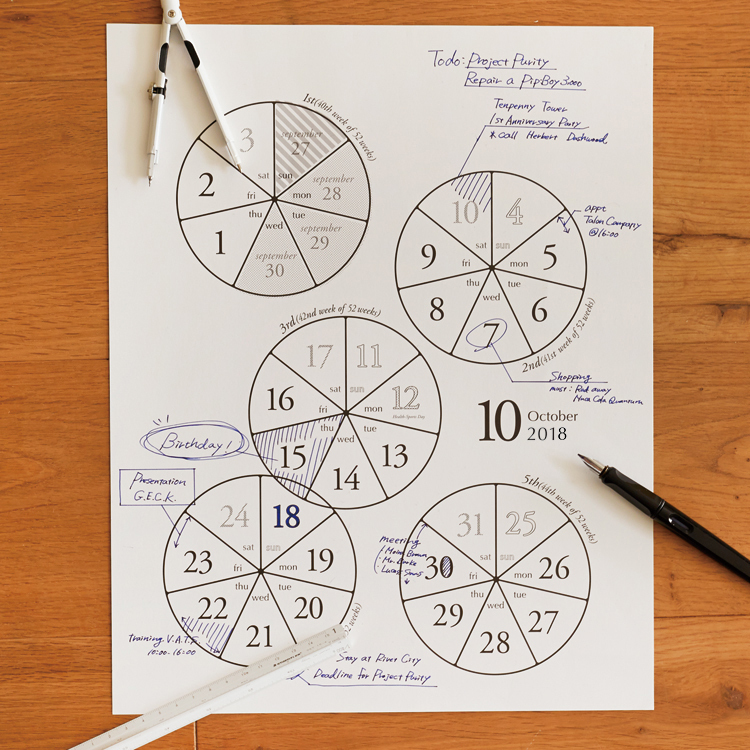 Todo: Project Purity
Repair a PipBoy 3000
Tenpenny Tower
1st Anniversary Party
* call Herbert Dashwood
1st (40th week of 52 weeks)
3
september
27
2
sat
sun
september
28
fri
mon
thu
tue
1
wed
september
29
september
30
10
4
appt
Talon Company
@16:00
9
sat
sun
5
fri
mon
thu
tue
8
wed
6
7
2nd (41st week of 52 weeks)
Shopping
most: Rad away
Nuca Cola Quantum
3rd (42nd week of 52 weeks)
17
11
16
sat
sun
12
Health-Sports Day
fri
mon
thu
tue
15
wed
13
14
10
October
2018
Birthday!
Presentation
G.E.C.K.
24
18
23
sat
sun
19
fri
mon
thu
tue
22
wed
20
21
weeks)
Training V.A.T.S.
10:00-16:00
Stay at River City
Deadline for Project Purity
5th (44th week of 52 weeks)
31
25
meeting
Mr.
Lucas Sims
30
sat
sun
26
fri
mon
thu
tue
29
wed
27
28